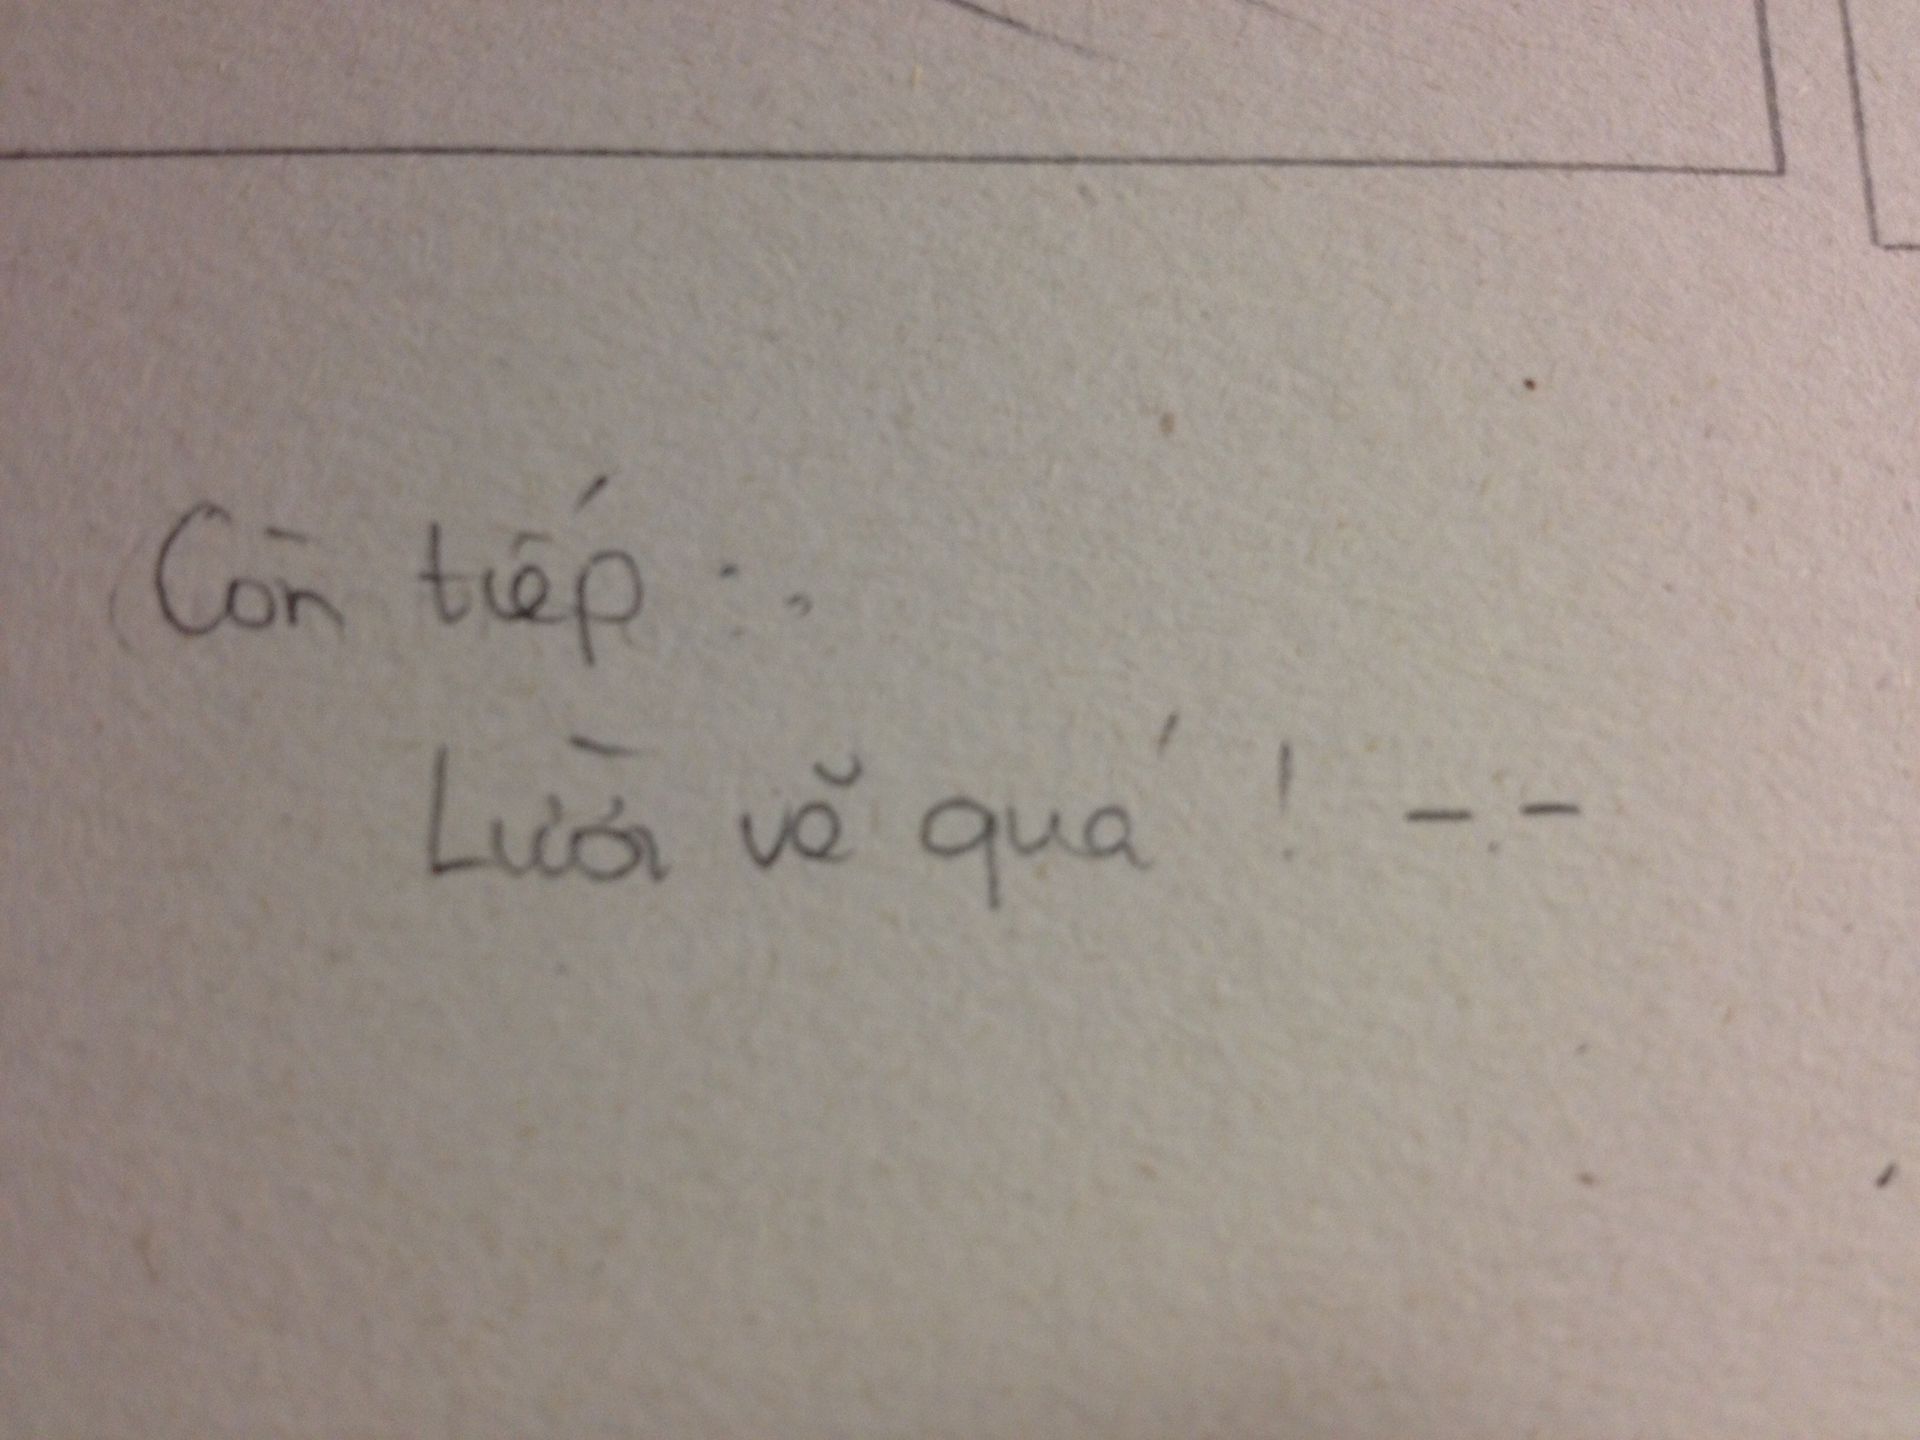 Còn tiếp...
Lười vẽ quá ! -.-